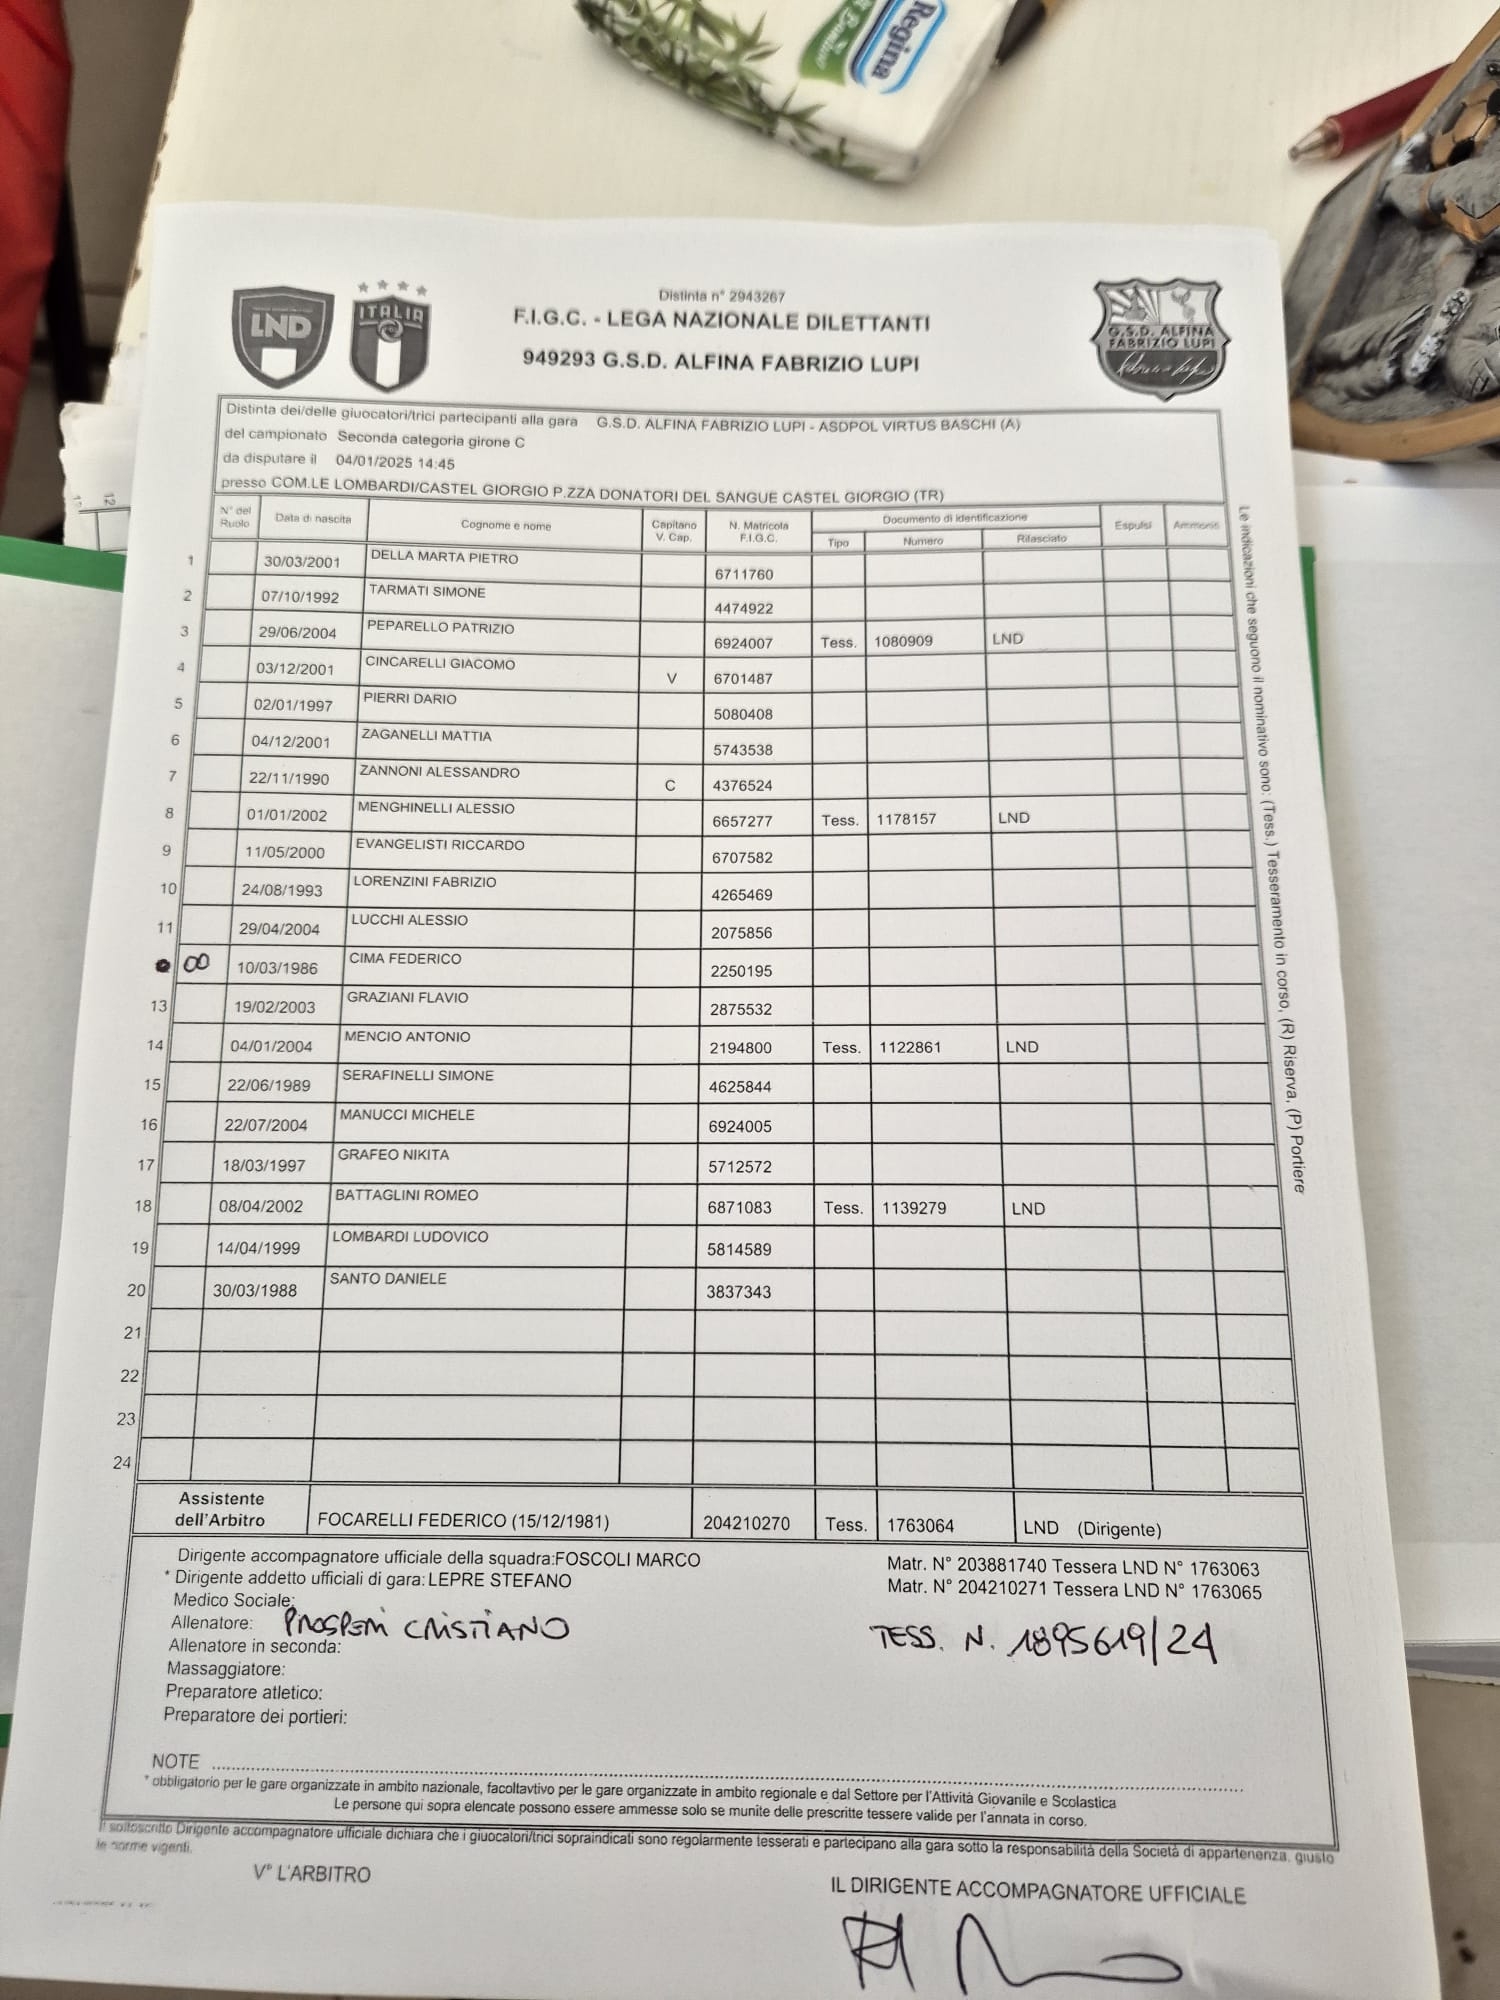 Regina
LND
ITALIA
Distinta n° 2943267
F.I.G.C. - LEGA NAZIONALE DILETTANTI
949293 G.S.D. ALFINA FABRIZIO LUPI
G.S.D. ALFINA
FABRIZIO LUPI
Distinta dei/delle giuocatori/trici partecipanti alla gara G.S.D. ALFINA FABRIZIO LUPI - ASDPOL VIRTUS BASCHI (A)
del campionato Seconda categoria girone C
da disputare il 04/01/2025 14:45
presso COM.LE LOMBARDI/CASTEL GIORGIO P.ZZA DONATORI DEL SANGUE CASTEL GIORGIO (TR)
N° del Ruolo Data di nascita Cognome e nome Capitano V. Cap. N. Matricola F.I.G.C. Documento di identificazione Espulsi Ammoniti
Tipo Numero Rilasciato
1 30/03/2001 DELLA MARTA PIETRO 6711760
2 07/10/1992 TARMATI SIMONE 4474922
3 29/06/2004 PEPARELLO PATRIZIO 6924007 Tess. 1080909 LND
4 03/12/2001 CINCARELLI GIACOMO V 6701487
5 02/01/1997 PIERRI DARIO 5080408
6 04/12/2001 ZAGANELLI MATTIA 5743538
7 22/11/1990 ZANNONI ALESSANDRO C 4376524
8 01/01/2002 MENGHINELLI ALESSIO 6657277 Tess. 1178157 LND
9 11/05/2000 EVANGELISTI RICCARDO 6707582
10 24/08/1993 LORENZINI FABRIZIO 4265469
11 29/04/2004 LUCCHI ALESSIO 2075856
10/03/1986 CIMA FEDERICO 2250195
13 19/02/2003 GRAZIANI FLAVIO 2875532
14 04/01/2004 MENCIO ANTONIO 2194800 Tess. 1122861 LND
15 22/06/1989 SERAFINELLI SIMONE 4625844
16 22/07/2004 MANUCCI MICHELE 6924005
17 18/03/1997 GRAFEO NIKITA 5712572
18 08/04/2002 BATTAGLINI ROMEO 6871083 Tess. 1139279 LND
19 14/04/1999 LOMBARDI LUDOVICO 5814589
20 30/03/1988 SANTO DANIELE 3837343
21
22
23
24
Le indicazioni che seguono il nominativo sono: (Tess.) Tesseramento in corso, (R) Riserva, (P) Portiere
Assistente dell'Arbitro FOCARELLI FEDERICO (15/12/1981) 204210270 Tess. 1763064 LND (Dirigente)
Dirigente accompagnatore ufficiale della squadra:FOSCOLI MARCO Matr. N° 203881740 Tessera LND N° 1763063
* Dirigente addetto ufficiali di gara: LEPRE STEFANO Matr. N° 204210271 Tessera LND N° 1763065
Medico Sociale:
Allenatore: PROSPERI CRISTIANO TESS. N. 1895619/24
Allenatore in seconda:
Massaggiatore:
Preparatore atletico:
Preparatore dei portieri:
NOTE
* obbligatorio per le gare organizzate in ambito nazionale, facoltavtivo per le gare organizzate in ambito regionale e dal Settore per l'Attività Giovanile e Scolastica
Le persone qui sopra elencate possono essere ammesse solo se munite delle prescritte tessere valide per l'annata in corso.
Il sottoscritto Dirigente accompagnatore ufficiale dichiara che i giuocatori/trici sopraindicati sono regolarmente tesserati e partecipano alla gara sotto la responsabilità della Società di appartenenza, giusto
le norme vigenti.
V° L'ARBITRO
IL DIRIGENTE ACCOMPAGNATORE UFFICIALE